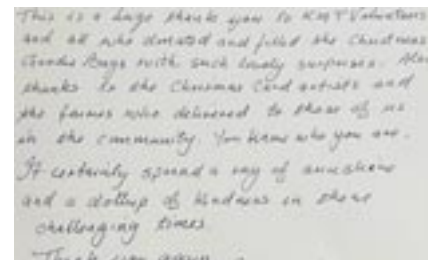 This is a huge thank you to KMT Volunteers
and all who donated and filled the Christmas
Goodie Bags with such lovely surprises. Also
thanks to the Christmas Card artists and
the farmer who delivered to those of us
in the community. You know who you are.
It certainly spread a ray of sunshine
and a dollup of kindness in these
challenging times.
Thank you again